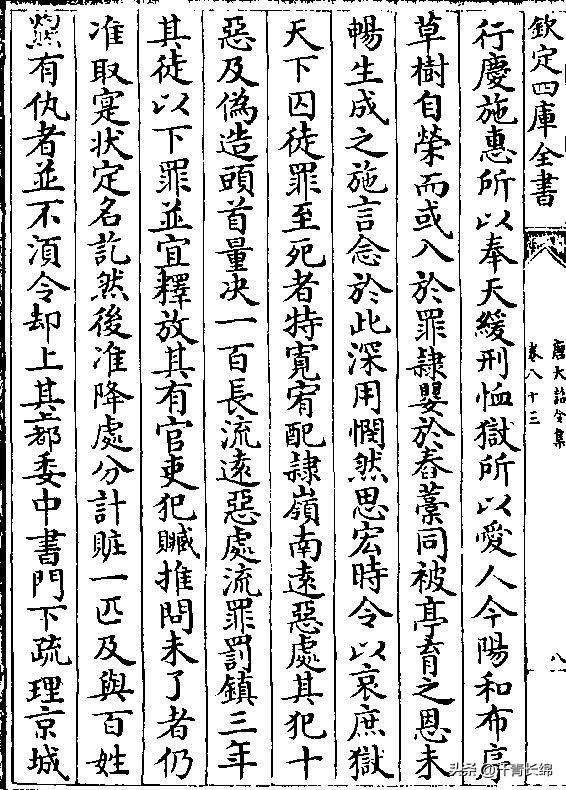 欽定四庫全書
唐大詔令集
卷八十三
八
行慶施惠所以奉天緩刑恤獄所以愛人今陽和布亭
草樹自榮而或入於罪隷嬰於舂藁同被亭育之恩未
暢生成之施言念於此深用憫然思宏時令以哀庶獄
天下囚徒罪至死者特寛宥配隷嶺南遠惡處其犯十
惡及偽造頭首量决一百長流遠惡處流罪罰鎮三年
其徒以下罪並宜釋放其有官吏犯贓推問未了者仍
准取寔状定名訖然後准降處分計賍一匹及與百姓
有仇者並不湏令却上其都委中書門下疏理京城
头条 @汗青长绵